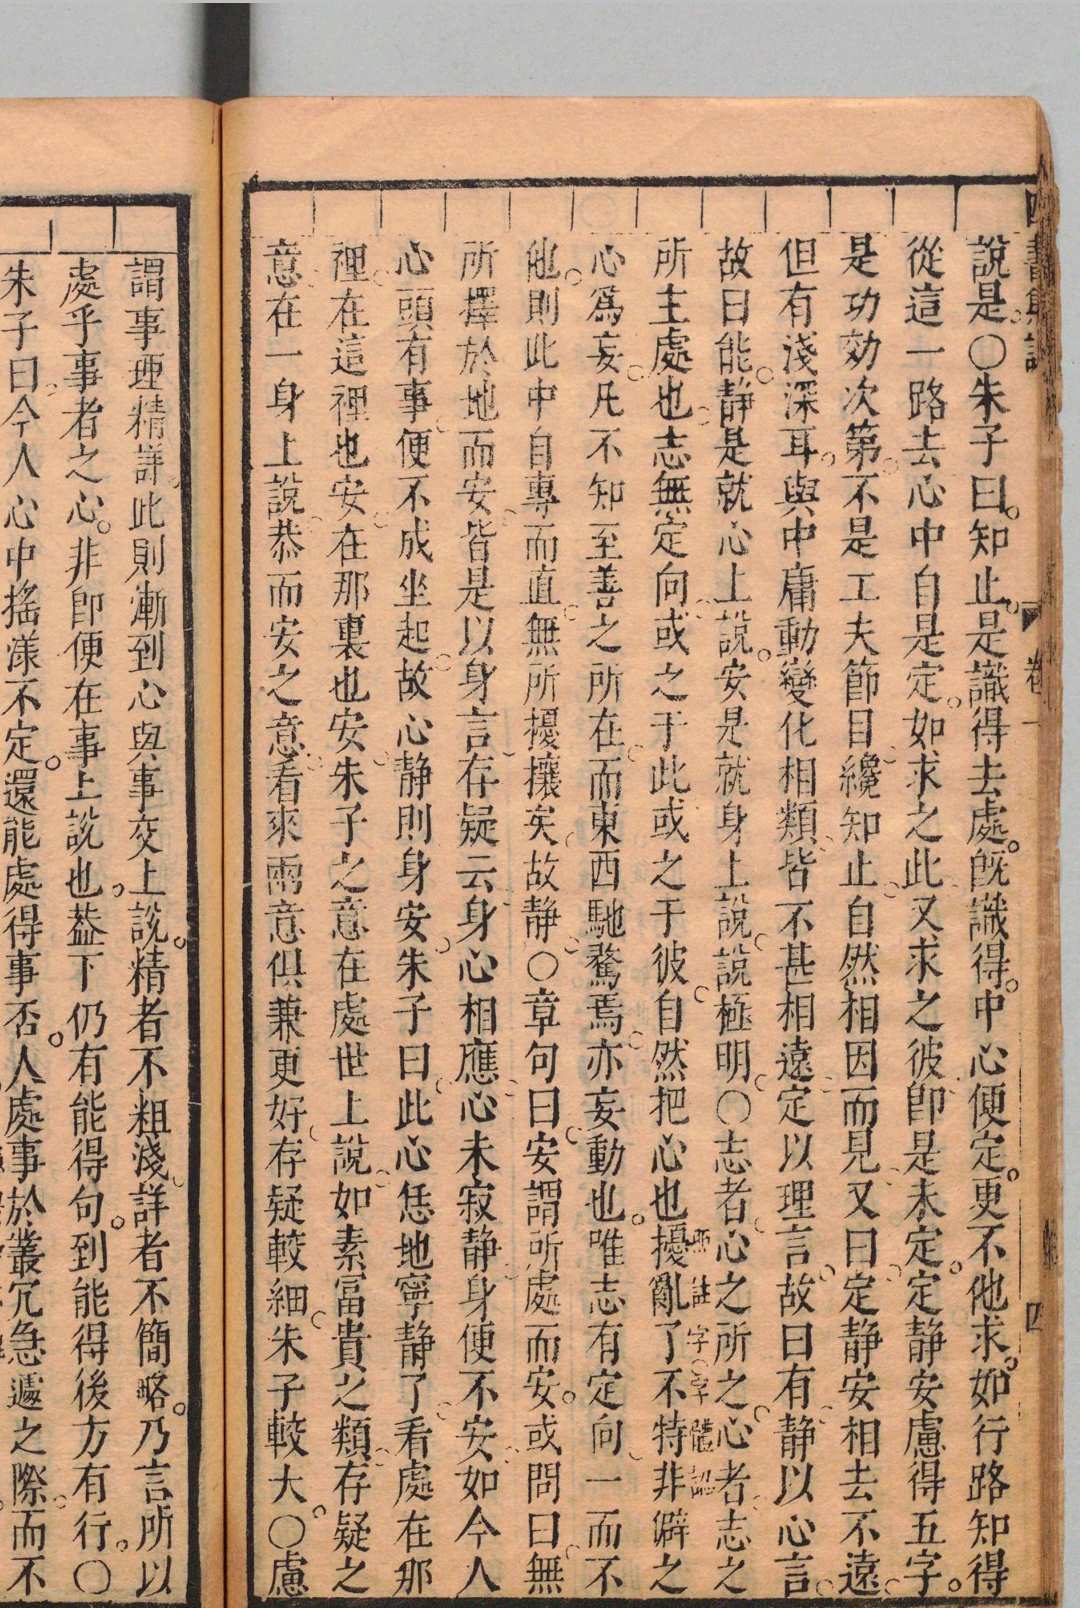 說是○朱子曰知止是識得去處旣識得中心便定更不他求如行路知得
從這一路去心中自是定如求之此又求之彼卽是未定定靜安慮得五字
是功効次第不是工夫節目纔知止自然相因而見又曰定靜安相去不遠
但有淺深耳與中庸動變化相類皆不甚相遠定以理言故曰有靜以心言
故曰能静是就心上說安是就身上說說極明○志者心之所之心者志之
所主處也志無定向或之于此或之于彼自然把心也擾亂了不特非僻之
心爲妄凡不知至善之所在而東西馳騖焉亦妄動也唯志有定向一而不
他則此中自專而直無所擾攘矣故静○章句曰安謂所處而安或問曰無
所擇於地而安皆是以身言存疑云身心相應心未寂静身便不安如今人
心頭有事便不成坐起故心静則身安朱子曰此心恁地寧静了看處在那
裡在這裡也安在那裏也安朱子之意在處世上說如素富貴之類存疑之
意在一身上說恭而安之意看來兩意俱兼更好存疑較細朱子較大○慮
謂事理精詳此則漸到心與事交上說精者不粗淺詳者不簡略乃言所以
處乎事者之心非卽便在事上說也葢下仍有能得句到能得後方有行○
朱子曰今人心中搖漾不定還能處得事否人處事於叢冗急遽之際而不